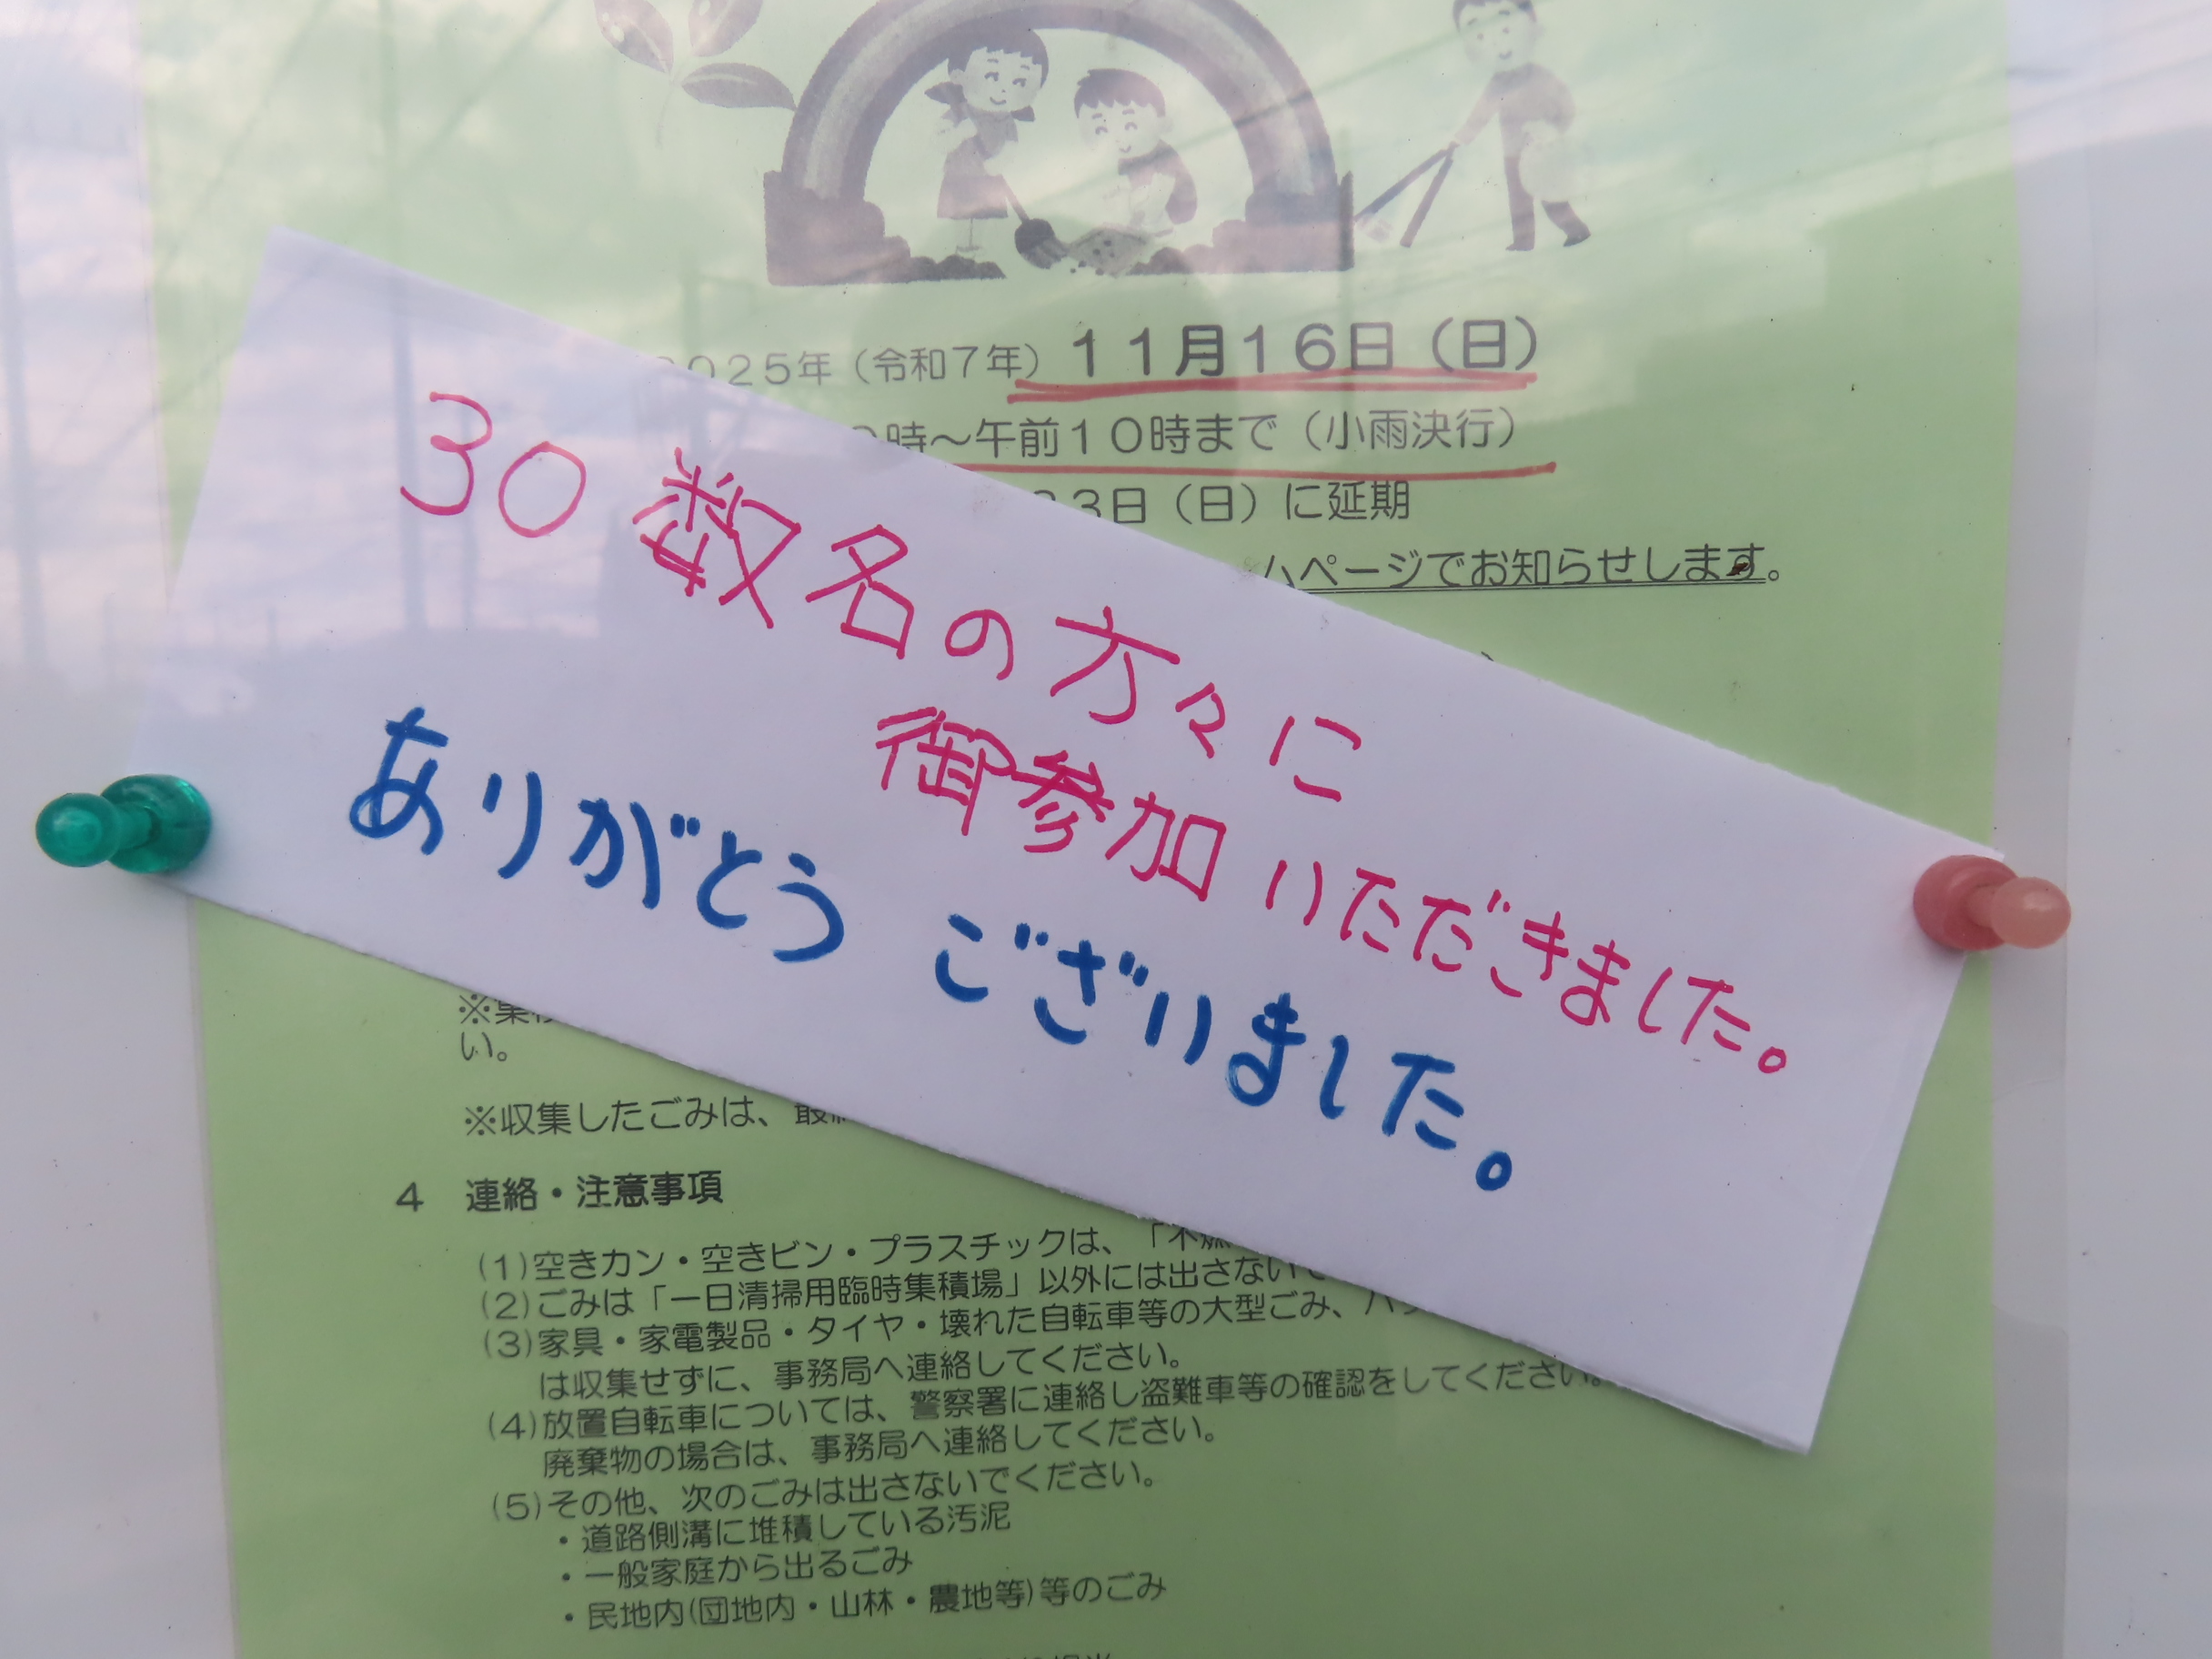 2025年（令和7年）11月16日（日）
時～午前10時まで（小雨決行）
3日（日）に延期
ムページでお知らせします。
30数名の方々に
御参加いただきました。
ありがとうございました。
※集
い。
※収集したごみは、最
4 連絡・注意事項
(1)空きカン・空きビン・プラスチックは、「不燃
(2)ごみは「一日清掃用臨時集積場」以外には出さないで
(3)家具・家電製品・タイヤ・壊れた自転車等の大型ごみ、バ
は収集せずに、事務局へ連絡してください。
(4)放置自転車については、警察署に連絡し盗難車等の確認をしてください。
廃棄物の場合は、事務局へ連絡してください。
(5)その他、次のごみは出さないでください。
・道路側溝に堆積している汚泥
・一般家庭から出るごみ
・民地内(団地内・山林・農地等)等のごみ